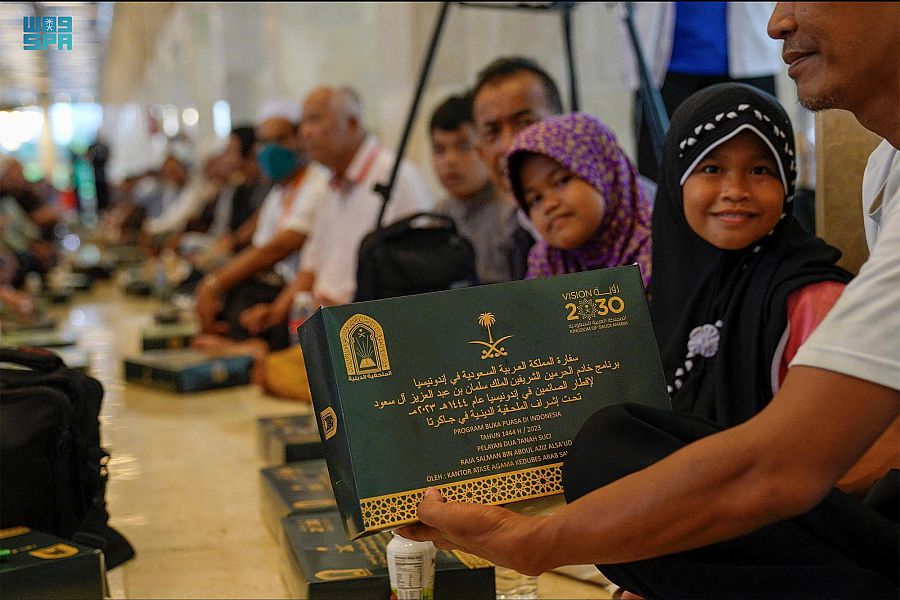 واس
SPA
VISION رؤية
2030
المملكة العربية السعودية
KINGDOM OF SAUDI ARABIA
الملحقية الدينية
سفارة المملكة العربية السعودية في إندونيسيا
برنامج خادم الحرمين الشريفين الملك سلمان بن عبد العزيز آل سعود
لإفطار الصائمين في إندونيسيا عام ١٤٤٤هـ ٢٠٢٣مـ
تحت إشراف الملحقية الدينية في جاكرتا
PROGRAM BUKA PUASA DI INDONESIA
TAHUN 1444 H / 2023
PELAYAN DUA TANAH SUCI
RAJA SALMAN BIN ABDUL AZIZ ALSA'UD
OLEH : KANTOR ATASE AGAMA KEDUBES ARAB